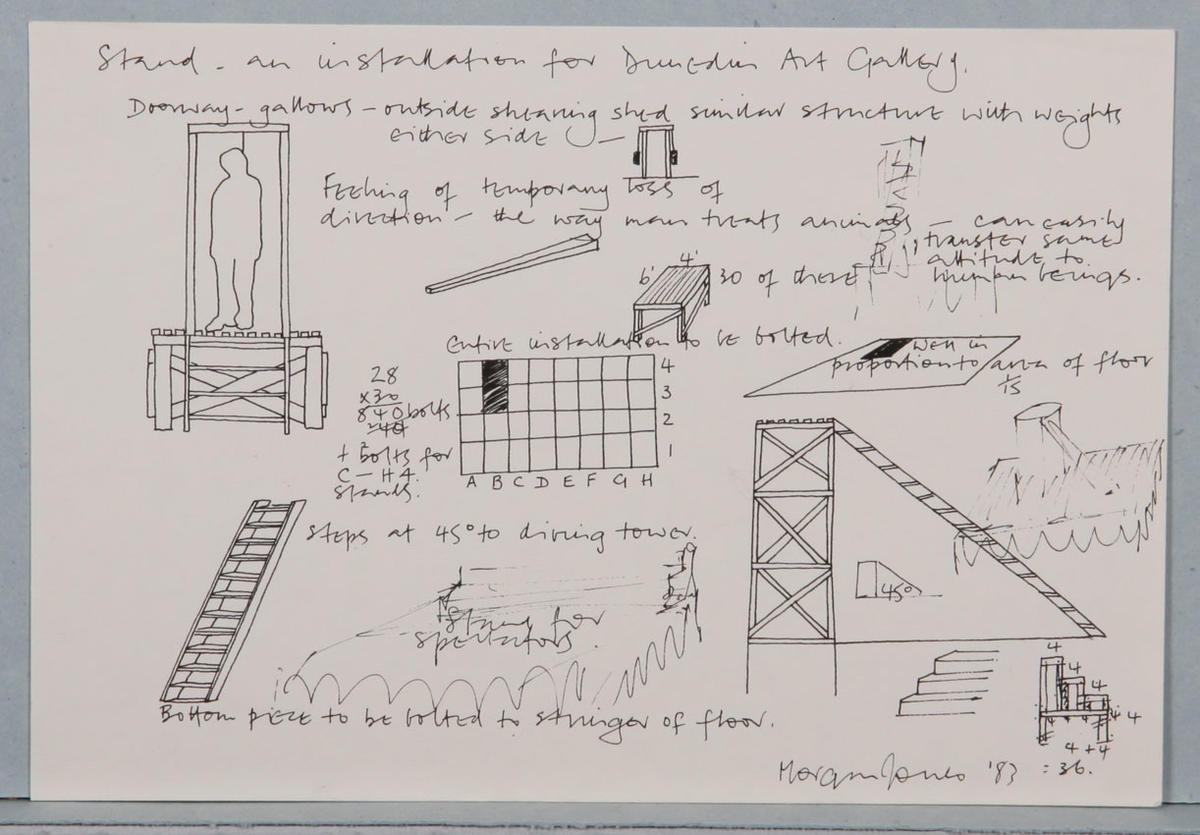 Stand - an installation for Dunedin Art Gallery.
Doorway - gallows - outside shearing shed similar structure with weights
either side -
Feeling of temporary loss of
direction - the way man treats animals - can easily
transfer same
attitude to
human beings.
6' 4' 30 of these
Entire installation to be bolted.
Well in
proportion to area of floor
1/15
28
x30
840 bolts
+ bolts for
C - H 4
stands.
4
3
2
1
A B C D E F G H
Steps at 45° to diving tower.
45°
Stand for
spectators.
Bottom piece to be bolted to stringer of floor.
4
4
4
4
4 + 4
= 36.
Morgan Jones '83